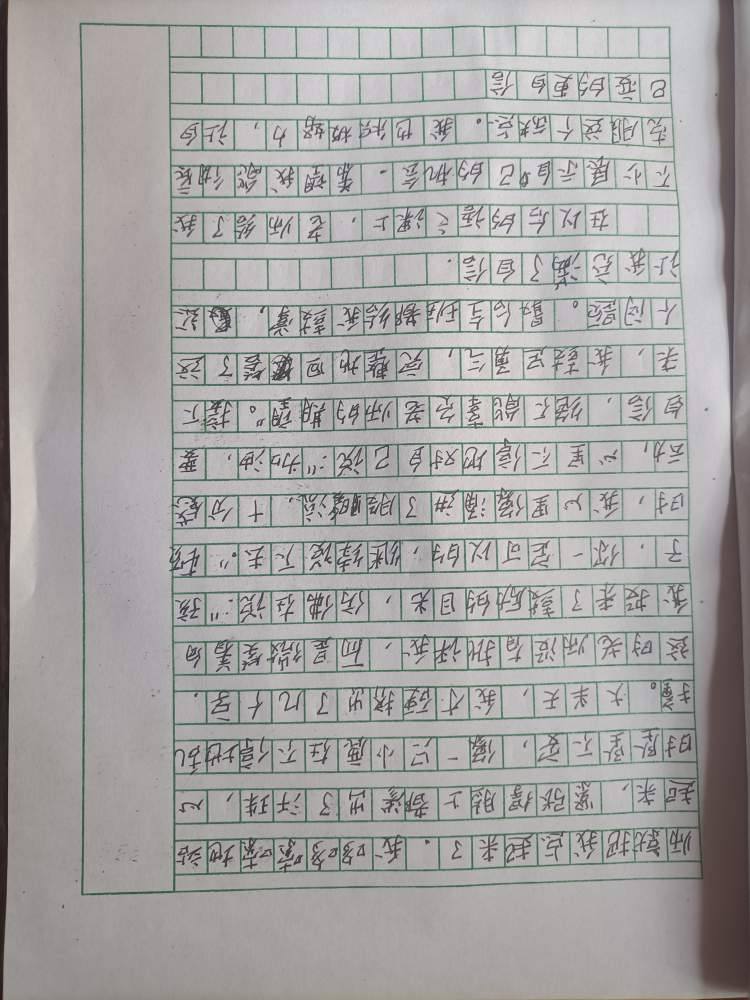 师就把我点起来了.我哆哆嗦嗦地站
起来,紧张得脸上都溢出了汗珠,心
时坠坠不安,像一只小鹿在不停地乱
撞。大半天,我才硬挤出了几个字.
这时老师没有批评我,而是微笑着向
我投来了鼓励的目光,仿佛在说:"孩
子,你一定可以的,继续说下去."顿
时,我心里像涌进了股暖流,十分感
动,心里不停地对自己说:"加油,要
自信,绝不能辜负老师的期望。"接下
来,我鼓足勇气,完整地回答了这
个问题。最后全班都给我鼓掌,这
让我充满了自信.
在以后的语文课上,老师给了我
不少展示自己的机会.希望我能够
克服这个缺点。我也积极努力,让自
己变的更自信